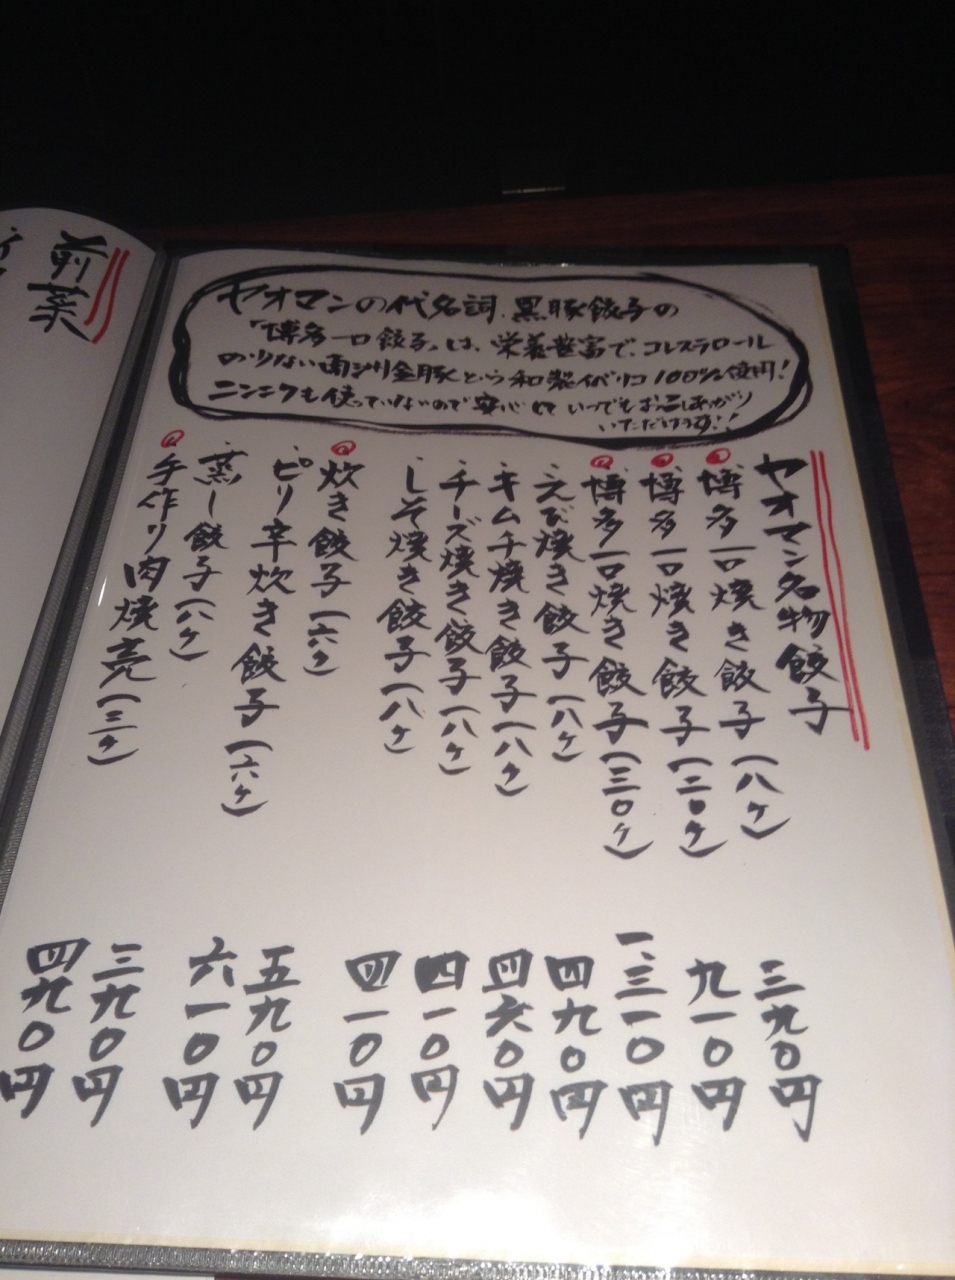 ヤオマンの代名詞、黒豚餃子の
「博多一口餃子」は、栄養豊富で、コレステロール
の少ない南州黒豚という和製イベリコ100%使用!
ニンニクも使っていないので安心していつでもお召しあがり
いただけます!!
ヤオマン名物餃子
博多一口焼き餃子(八ケ) 三九〇円
博多一口焼き餃子(二〇ケ) 九一〇円
博多一口焼き餃子(三〇ケ) 一、三一〇円
・えび焼き餃子(八ケ) 四九〇円
・キムチ焼き餃子(八ケ) 四六〇円
・チーズ焼き餃子(八ケ) 四一〇円
・しそ焼き餃子(八ケ) 四一〇円
炊き餃子(六ケ) 五九〇円
・ピリ辛炊き餃子(六ケ) 六一〇円
・蒸し餃子(八ケ) 三九〇円
手作り肉焼売(三ケ) 四九〇円
前菜